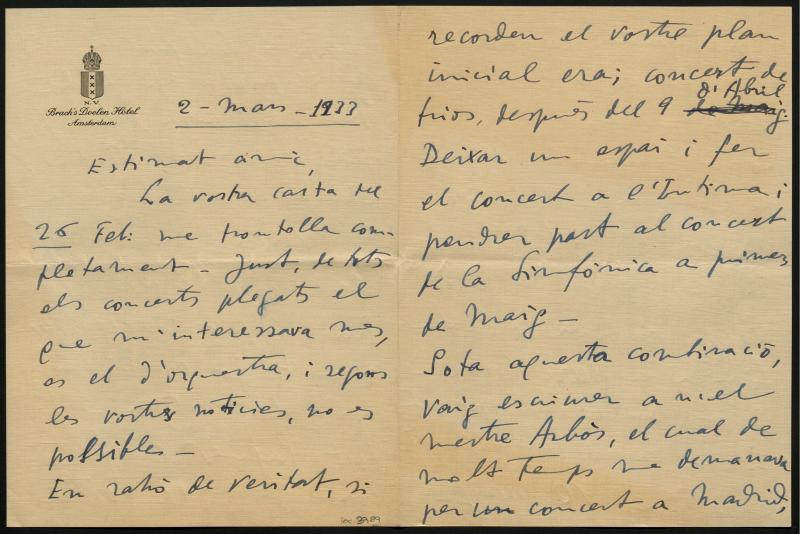 N.V.
Brack's Doelen Hotel
Amsterdam
2 - Mars - 1933
Estimat amic,
La vostra carta del
26 Feb: me trontolla com-
pletament - Just, de tots
els concerts plegats el
que m'interessava mes,
es el d'orquestra, i segons
les vostres noticies, no es
possibles -
En ratò de veritat, si
recorden el vostre plan
inicial era; concert de
trios, desprès del 9 de Maig. d'Abril
Deixar un espai i fer
el concert a l'Intima i
pendrer part al concert
de la Simfònica a primers
de Maig -
Sota aquesta combinaciò,
vaig escriurer a n'el
mestre Arbòs, el cual de
molt temps me demanava
per un concert a Madrid,